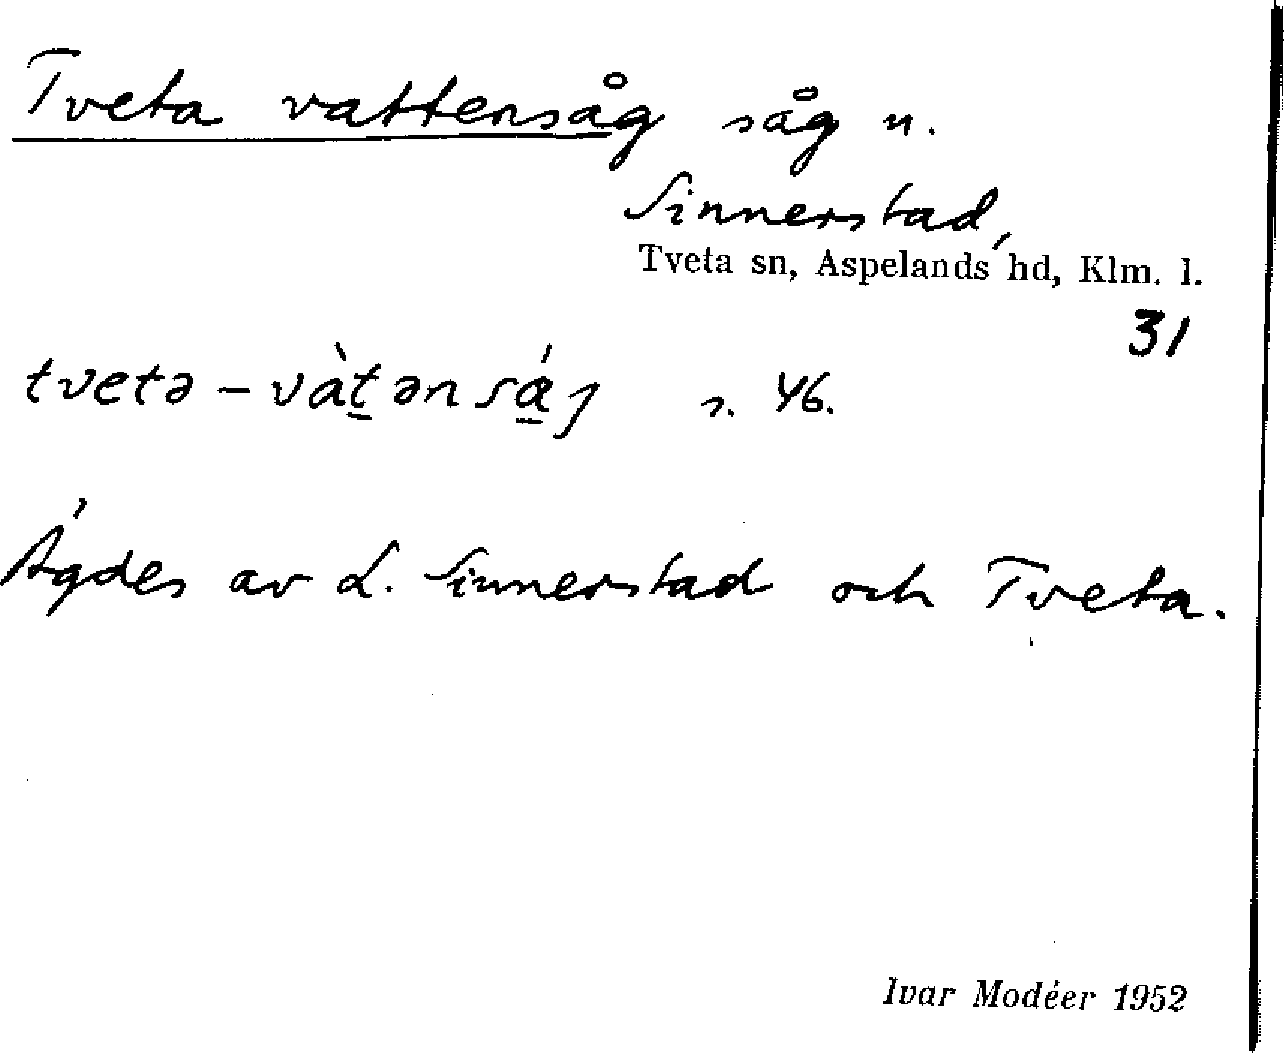 Tveta vattensåg såg n.
Sinnerstad,
Tveta sn, Aspelands hd, Klm. l.
31
tvetə-vàt̲ənsá̲ȷ s. 46.
Ägdes av L. Sinnerstad och Tveta.
Ivar Modéer 1952